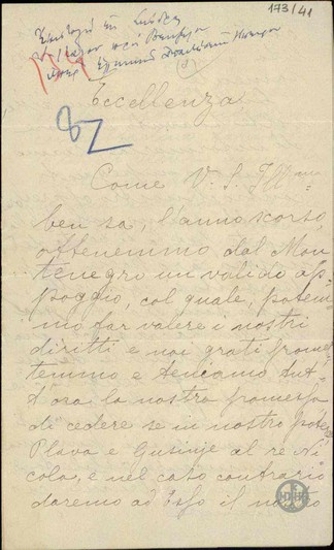 173/41
Eccellenza
82
Come V. S. Ill.ma
ben sa, l'anno scorso
ottenemmo dal Mon
tenegro un valido ap
poggio, col quale, potem
mo far valere i nostri
diritti e noi grati prome
temmo e teniamo tut
t'ora la nostra promessa
di cedere se in nostro potere
Plava e Gusinje al re Ni
cola, e nel caso contrario
daremo ad Esso il nostro